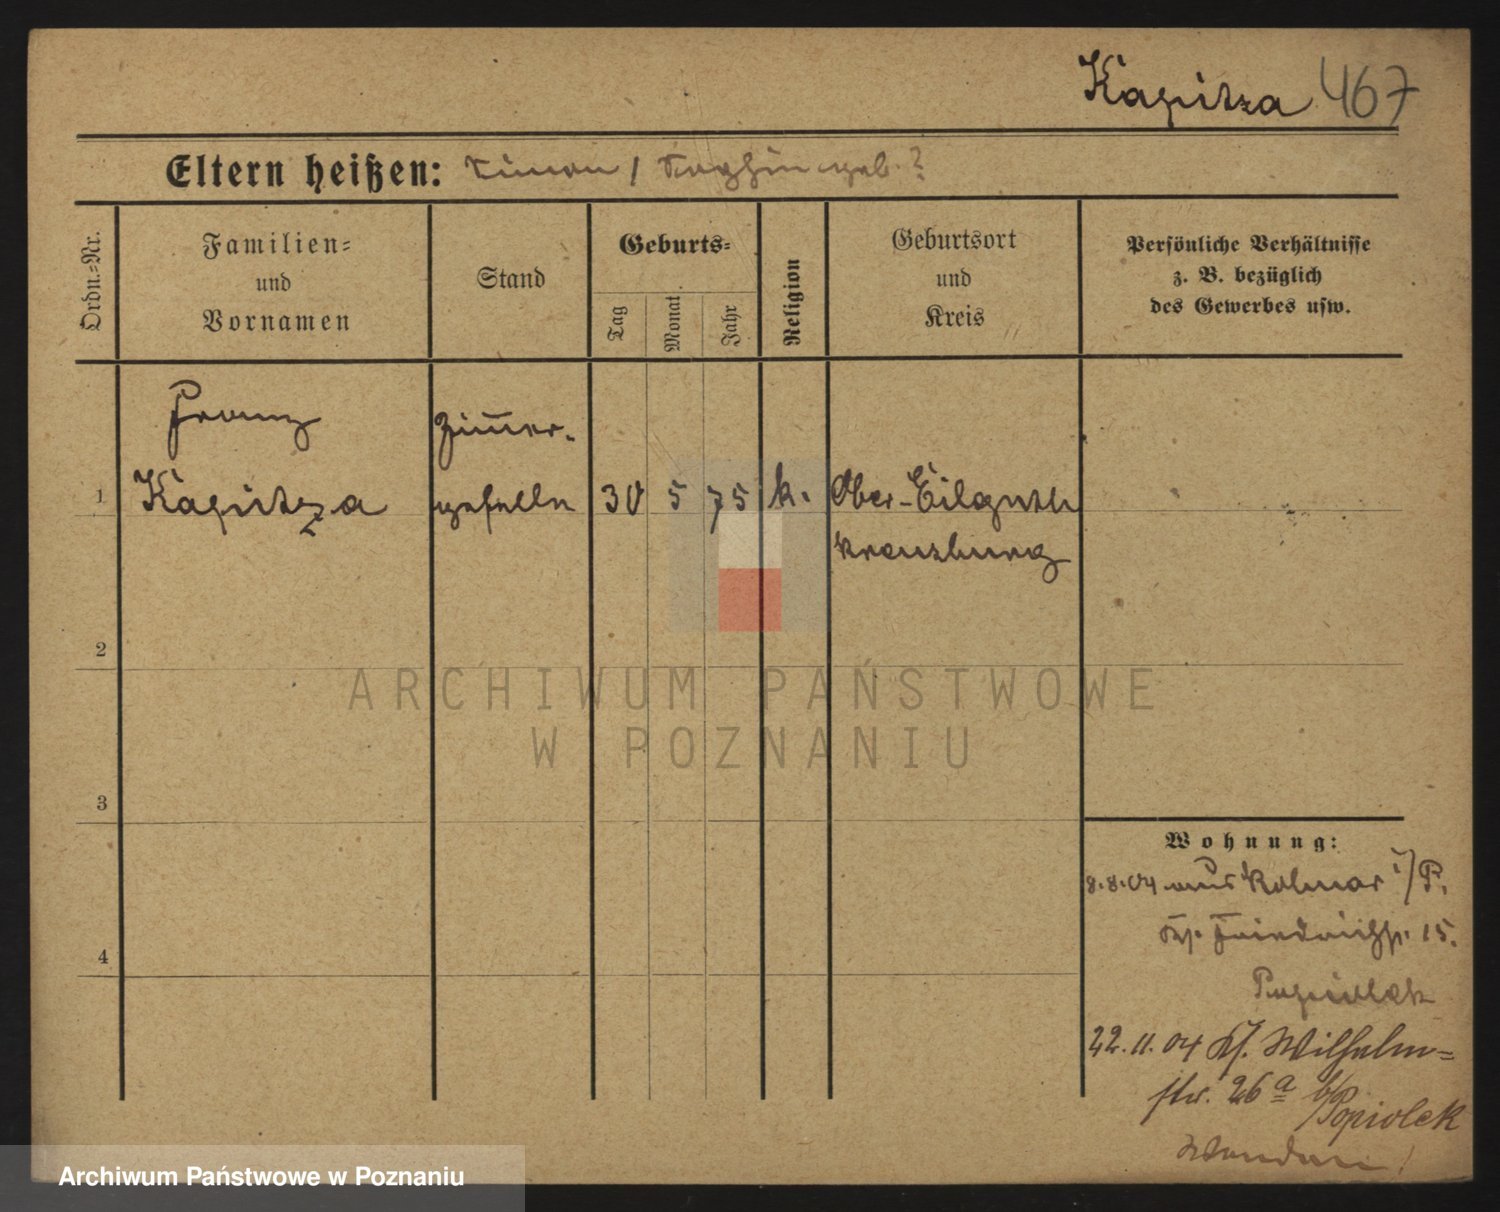 Kapitza 467
Eltern heißen: Simon / geb. ?
Ordn.=Nr.
Familien=
und
Vornamen
Stand
Geburts=
Tag
Monat
Jahr
Religion
Geburtsort
und
Kreis
Persönliche Verhältnisse
z. B. bezüglich
des Gewerbes usw.
Franz
Zim̅er-
1 Kapitza geselle 30 5 75 k. Ober-Eilguth
Kreuzburg
2
ARCHIWUM PAŃSTWOWE
W POZNANIU
3
Wohnung:
8.8.04 aus Kolmar i/P.
15.
Popiolek
4
22.11.04 Wilhelm=
str. 26a b/Popiolek
Wenden!
Archiwum Państwowe w Poznaniu